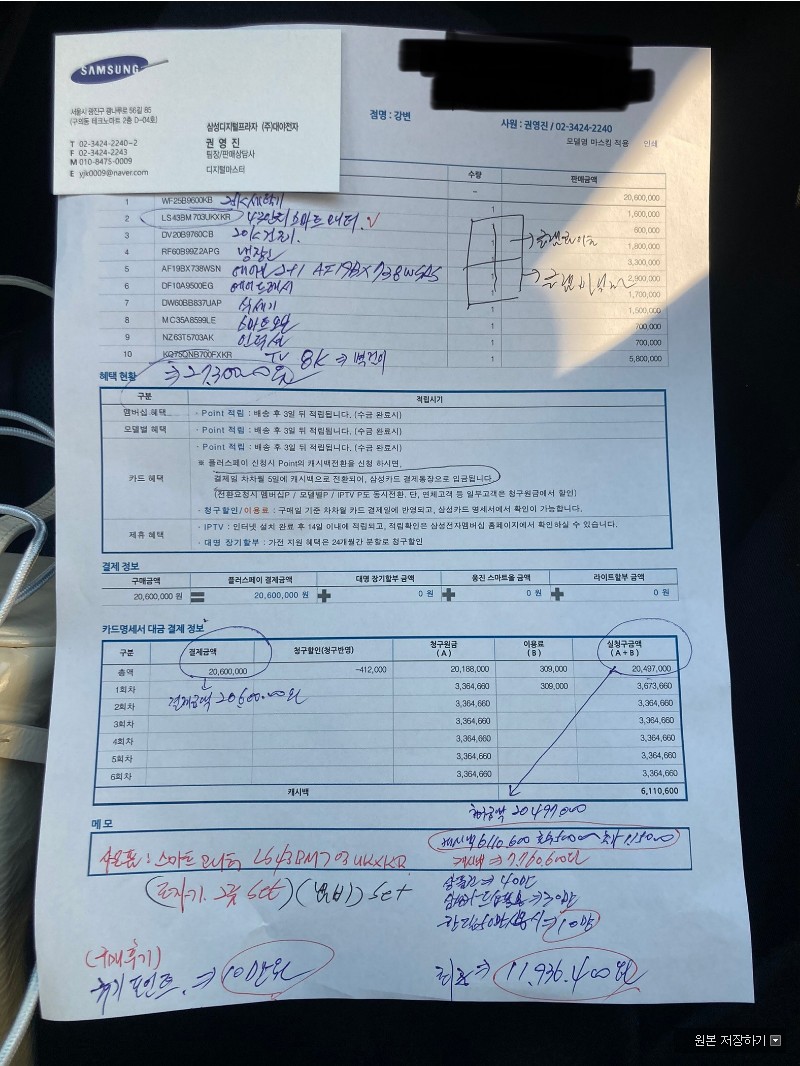 SAMSUNG
서울시 광진구 광나루로 56길 85
(구의동 테크노마트 2층 D-04호)
삼성디지털프라자 (주)대아전자
T 02-3424-2240~2
F 02-3424-2243
M 010-8475-0009
E yjk0009@naver.com
권 영 진
팀장/판매상담사
디지털마스터
점명 : 강변
사원 : 권영진 / 02-3424-2240
모델명 마스킹 적용 인쇄
수량 판매금액
20,600,000
1 WF25B9600KB 1 1,600,000
2 LS43BM703UKXKR 43인치 스마트 모니터 V 1 600,000
3 DV20B9760CB 20K 건조기 1 1,800,000
4 RF60B99Z2APG 냉장고 1 3,300,000
5 AF19BX738WSN 에어컨 2+1 AF19BX738WSAS 1 2,900,000
6 DF10A9500EG 에어드레서 1 1,700,000
7 DW60BB837UAP 식세기 1 1,500,000
8 MC35A8599LE 스마트오븐 1 700,000
9 NZ63T5703AK 인덕션 1 700,000
10 KQ75QNB700FXKR TV 8K ⇒ 벽걸이 1 5,800,000
혜택 현황
구분 적립시기
멤버십 혜택 - Point 적립 : 배송 후 3일 뒤 적립됩니다. (수금 완료시)
모델별 혜택 - Point 적립 : 배송 후 3일 뒤 적립됩니다. (수금 완료시)
- Point 적립 : 배송 후 3일 뒤 적립됩니다. (수금 완료시)
※ 플러스페이 신청시 Point의 캐시백전환을 신청 하시면,
카드 혜택 결제일 차차월 5일에 캐시백으로 전환되어, 삼성카드 결제통장으로 입금됩니다.
(전환요청시 멤버십P / 모델별P / IPTV P도 동시전환. 단, 연체고객 등 일부고객은 청구원금에서 할인)
- 청구할인/이용료 : 구매일 기준 차차월 카드 결제일에 반영되고, 삼성카드 명세서에서 확인이 가능합니다.
제휴 혜택 - IPTV : 인터넷 설치 완료 후 14일 이내에 적립되고, 적립확인은 삼성전자멤버십 홈페이지에서 확인하실 수 있습니다.
- 대명 장기할부 : 가전 지원 혜택은 24개월간 분할로 청구할인
결제 정보
구매금액 플러스페이 결제금액 대명 장기할부 금액 웅진 스마트올 금액 라이트할부 금액
20,600,000 원 = 20,600,000 원 + 0 원 + 0 원 + 0 원
카드명세서 대금 결제 정보
구분 결제금액 청구할인(청구반영) 청구원금 (A) 이용료 (B) 실청구금액 (A+B)
총액 20,600,000 -412,000 20,188,000 309,000 20,497,000
1회차 3,364,660 309,000 3,673,660
결제금액 20,600,000원
2회차 3,364,660 3,364,660
3회차 3,364,660 3,364,660
4회차 3,364,660 3,364,660
5회차 3,364,660 3,364,660
6회차 3,364,660 3,364,660
캐시백 6,110,600
20,497,000
메 모
사은품 : 스마트 모니터 LS43BM703UKXKR
캐시백 ⇒ 7,760,600원
⇒ 40만
⇒ 30만
⇒ 10만
(구매후기)
후기 포인트 ⇒ 10만원
최종 ⇒ 11,936,400원
원본 저장하기